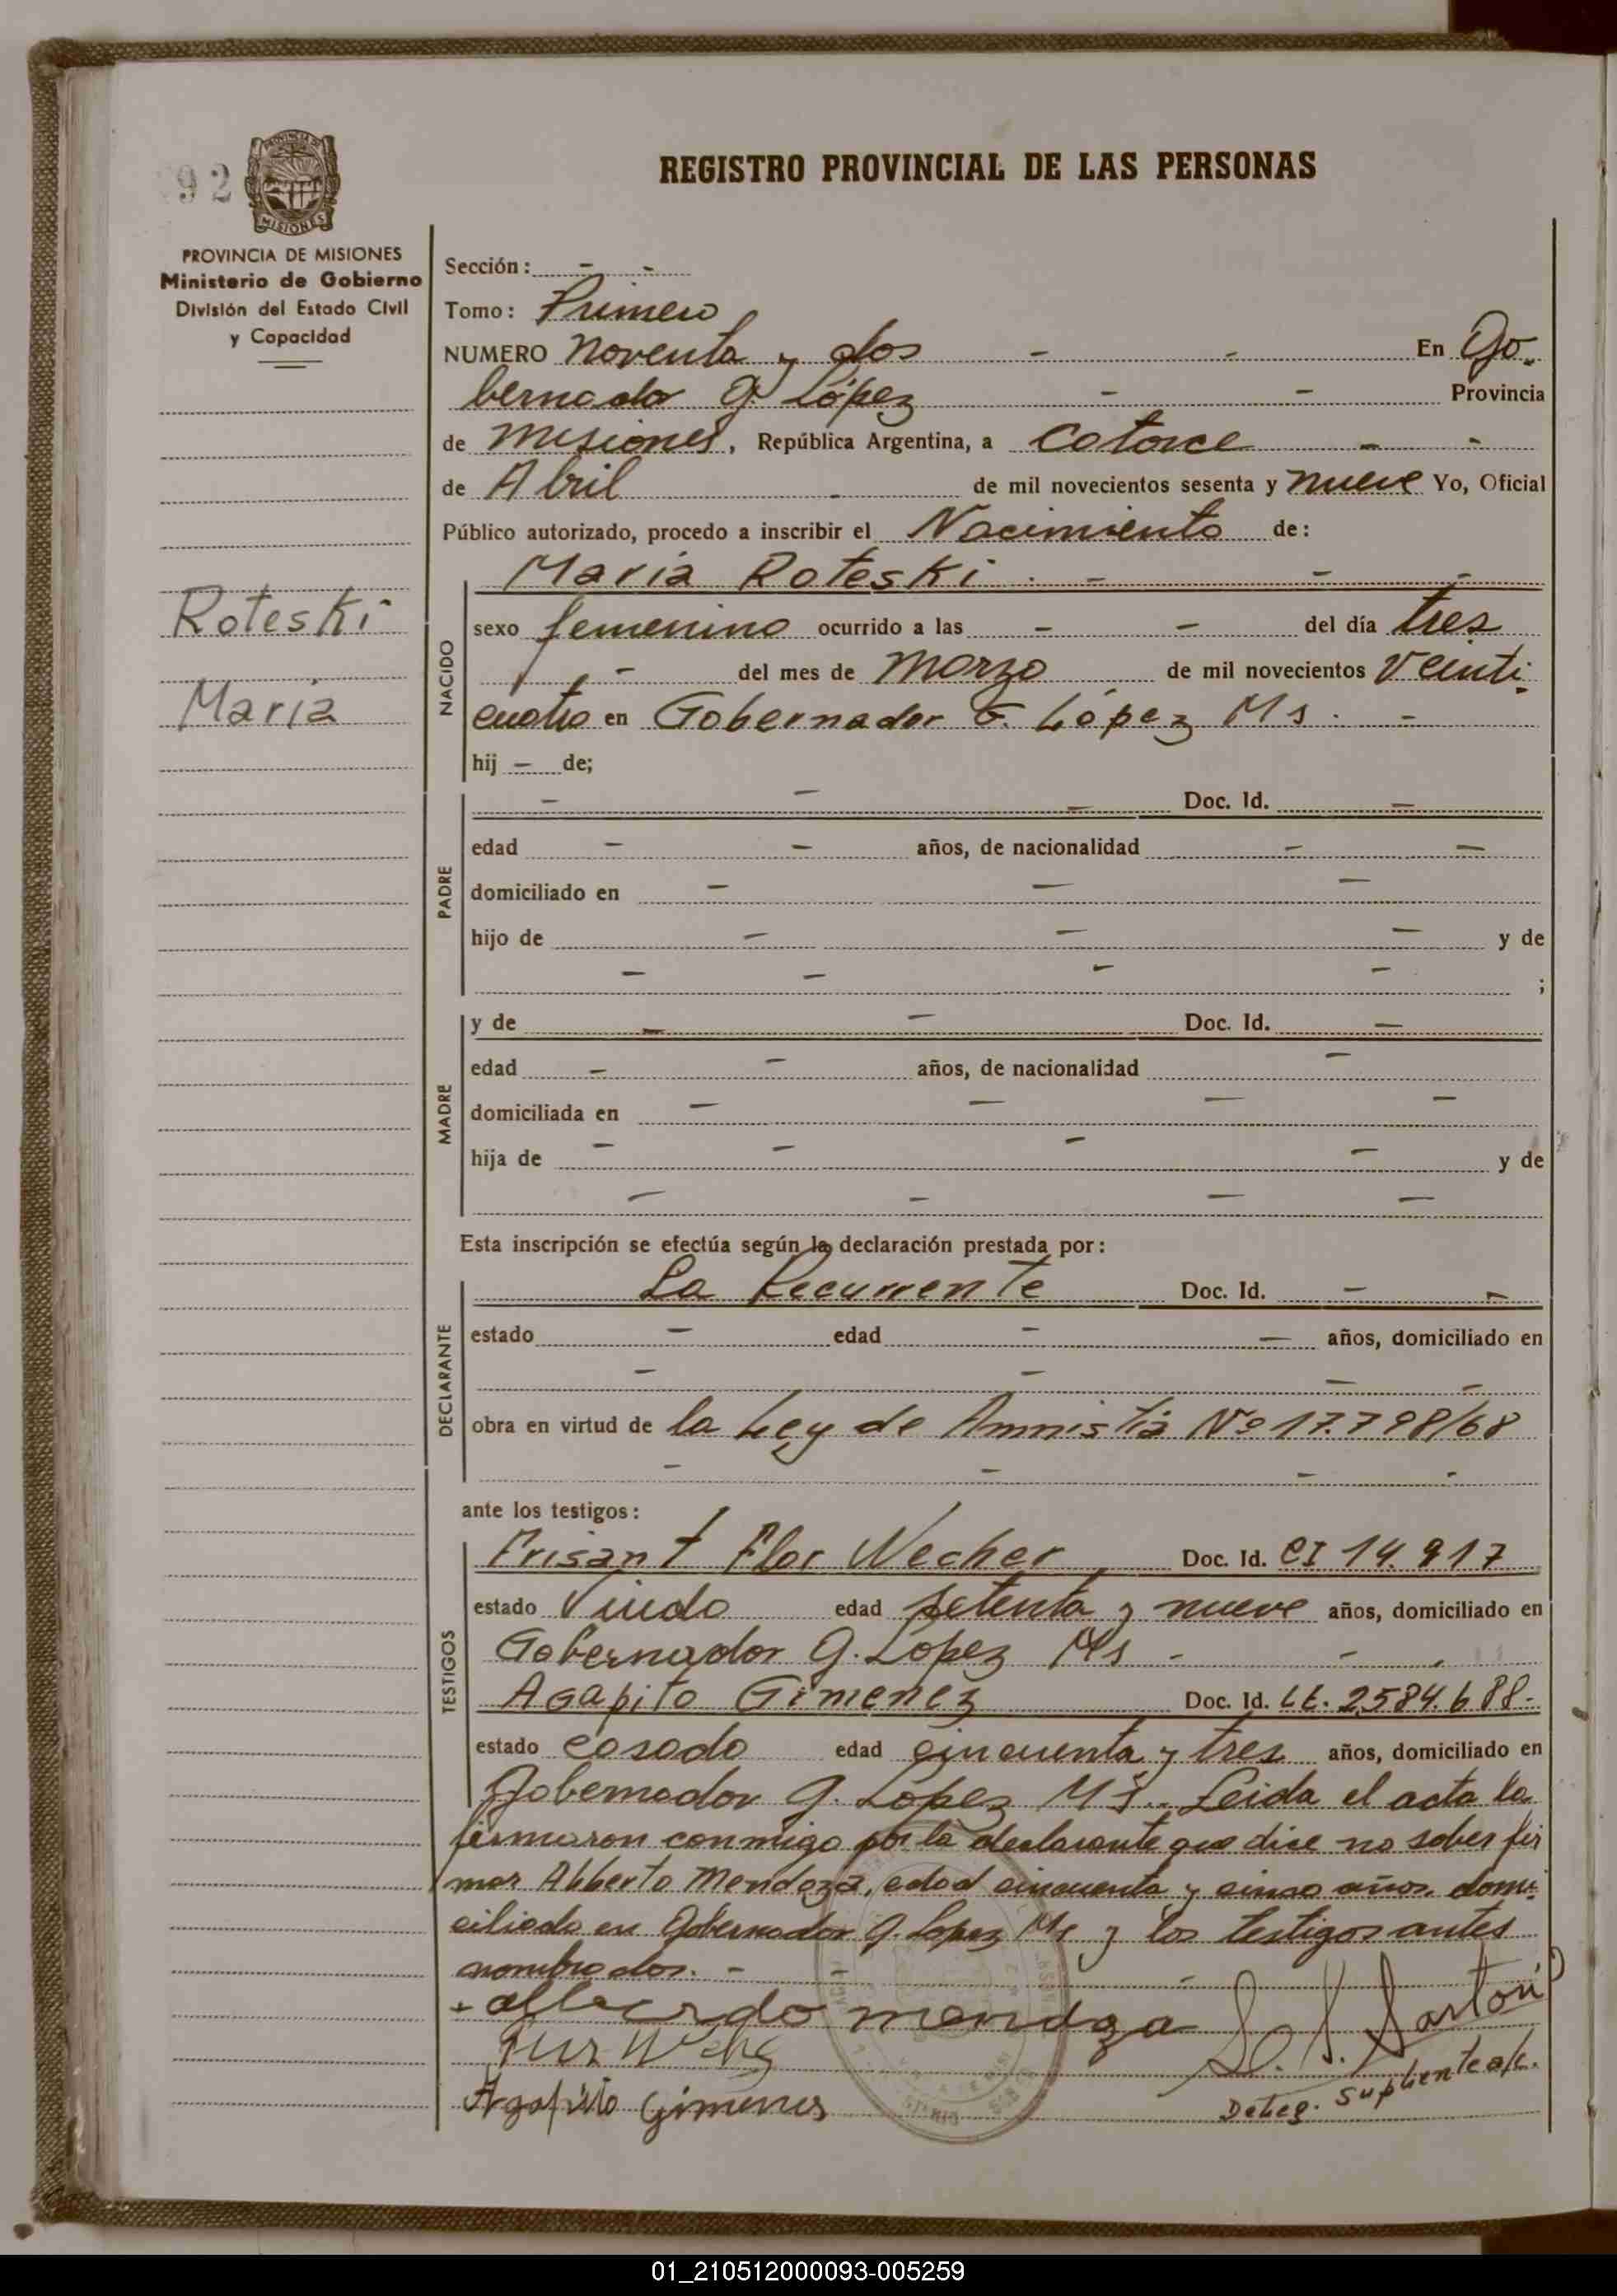 92
REGISTRO PROVINCIAL DE LAS PERSONAS
PROVINCIA DE MISIONES
Ministerio de Gobierno
División del Estado Civil
y Capacidad
Roteski
María
Sección: - -
Tomo: Primero
NUMERO noventa y dos - - En Go-
bernador G. López - - Provincia
de Misiones, República Argentina, a Catorce - -
de Abril - de mil novecientos sesenta y nueve Yo, Oficial
Público autorizado, procedo a inscribir el Nacimiento de:
María Roteski - - -
NACIDO
sexo femenino ocurrido a las - - del día tres
- del mes de Marzo de mil novecientos veinti-
cuatro en Gobernador G. López Ms. -
hij - de;
PADRE
- - - Doc. Id. -
edad - - años, de nacionalidad - -
domiciliado en - - -
hijo de - - - y de
- - - - ;
MADRE
y de - - Doc. Id. -
edad - - años, de nacionalidad -
domiciliada en - - - -
hija de - - - - y de
- - - -
Esta inscripción se efectúa según la declaración prestada por:
DECLARANTE
La Recurrente Doc. Id. - -
estado - edad - - años, domiciliado en
- - - -
obra en virtud de la Ley de Amnistía Nº 17.798/68
- - - -
ante los testigos:
TESTIGOS
Flor Wecher Doc. Id. CI 14.917
estado Viudo edad setenta y nueve años, domiciliado en
Gobernador G. López Ms - - -
Agapito Gimenez Doc. Id. LE. 2584.688-
estado casado edad cincuenta y tres años, domiciliado en
Gobernador G. López Ms.. Leida el acta la
firmaron conmigo por la declarante que dice no saber fir
mar Alberto Mendoza, edad cincuenta y cinco años, domi-
ciliado en Gobernador G. López Ms y los testigos antes
nombrados. - - -
mendoza
Agapito Gimenes
Deleg. Suplente a/c.
01_210512000093-005259